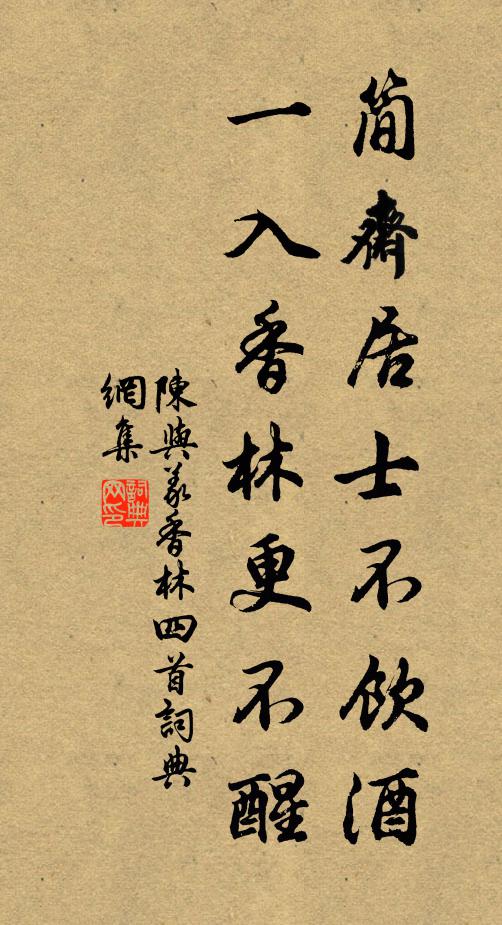 简齋居士不飲酒
一入香林更不醒
陳與義香林四首詞典
網集
詞典
网印